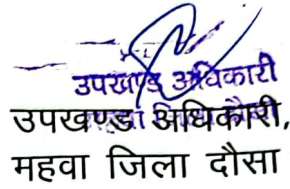 उपखण्ड अधिकारी
उपखण्ड अधिकारी,
महवा जिला दौसा